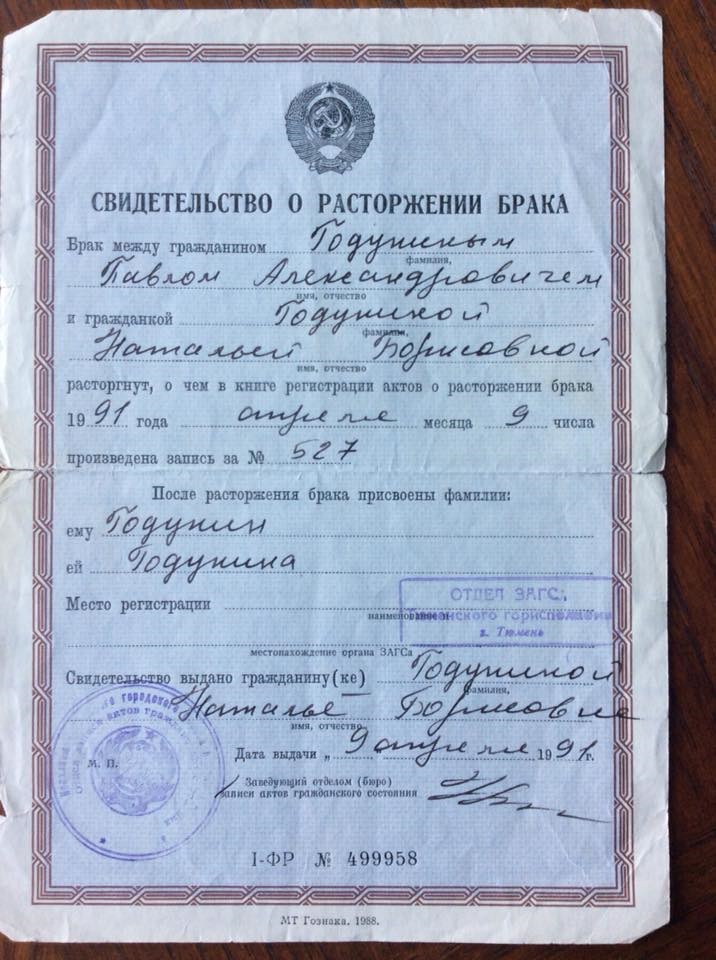 СВИДЕТЕЛЬСТВО О РАСТОРЖЕНИИ БРАКА
Брак между гражданином Годуниным
фамилия,
Павлом Александровичем
имя, отчество
и гражданкой Годуниной
фамилия,
Натальей Борисовной
имя, отчество
расторгнут, о чем в книге регистрации актов о расторжении брака
1991 года апреле месяца 9 числа
произведена запись за № 527
После расторжения брака присвоены фамилии:
ему Годунин
ей Годунина
Место регистрации
ОТДЕЛ ЗАГС
наименование и
горисполкома
г. Тюмень
местонахождение органа ЗАГСа
Свидетельство выдано гражданину(ке) Годуниной
фамилия,
Наталье Борисовне
имя, отчество
Дата выдачи „ 9 апреля 1991 г.
городского
актов
М. П.
Заведующий отделом (бюро)
записи актов гражданского состояния
I-ФР № 499958
МТ Гознака. 1988.